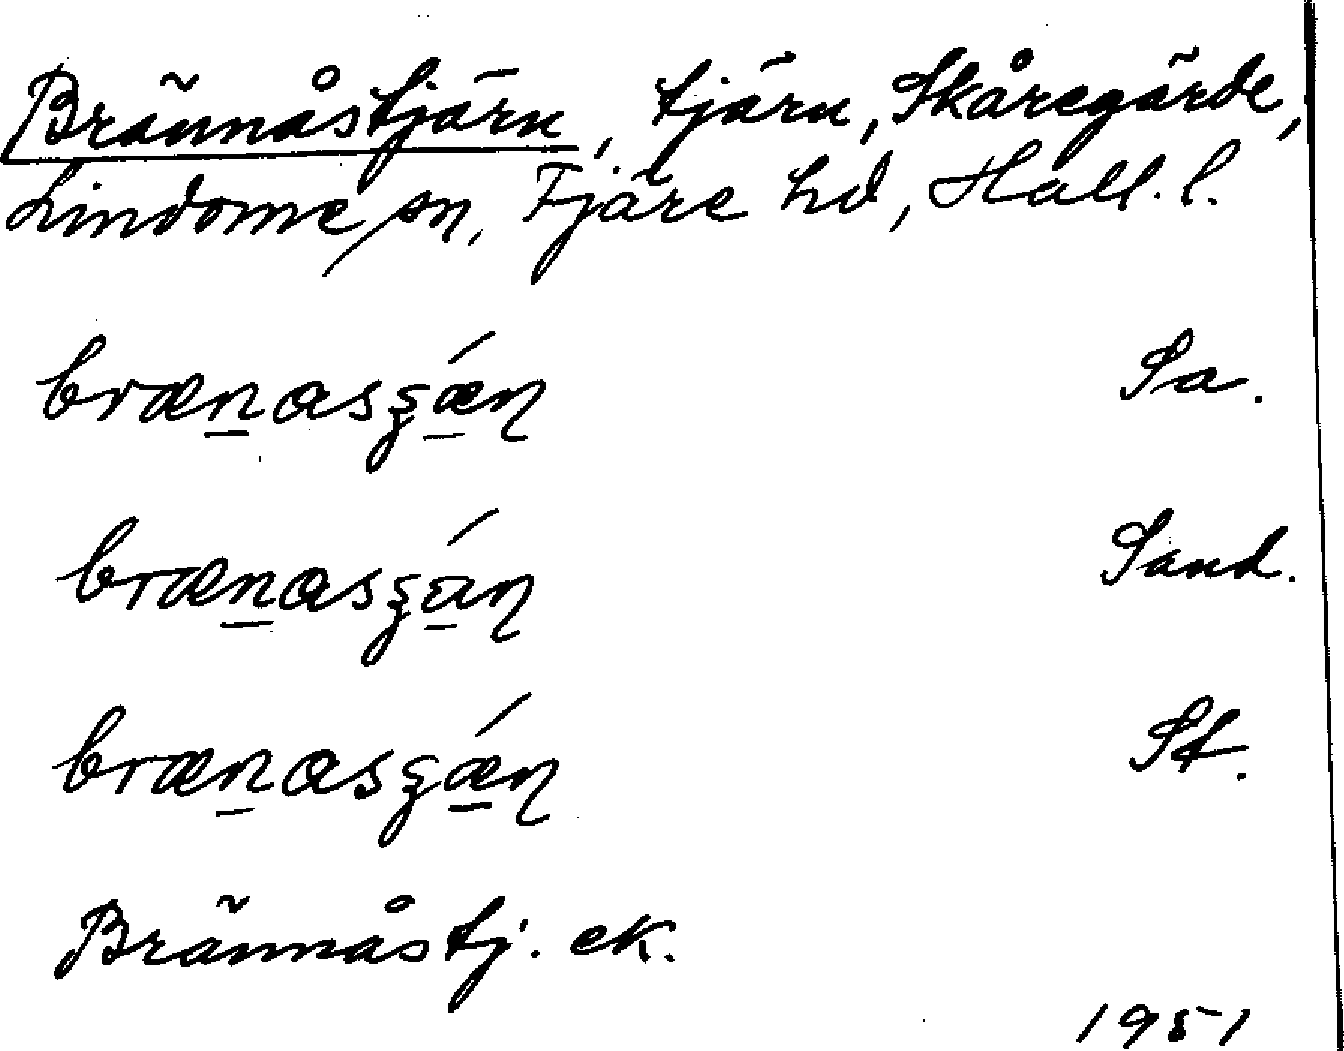 Brännåstjärn, tjärn, Skåregärde,
Lindome sn, Fjäre hd, Hall. l.
brænasʒǽn Sa.
brænasʒán Sand.
brænasʒǽn St.
Brännåstj. ek.
1951